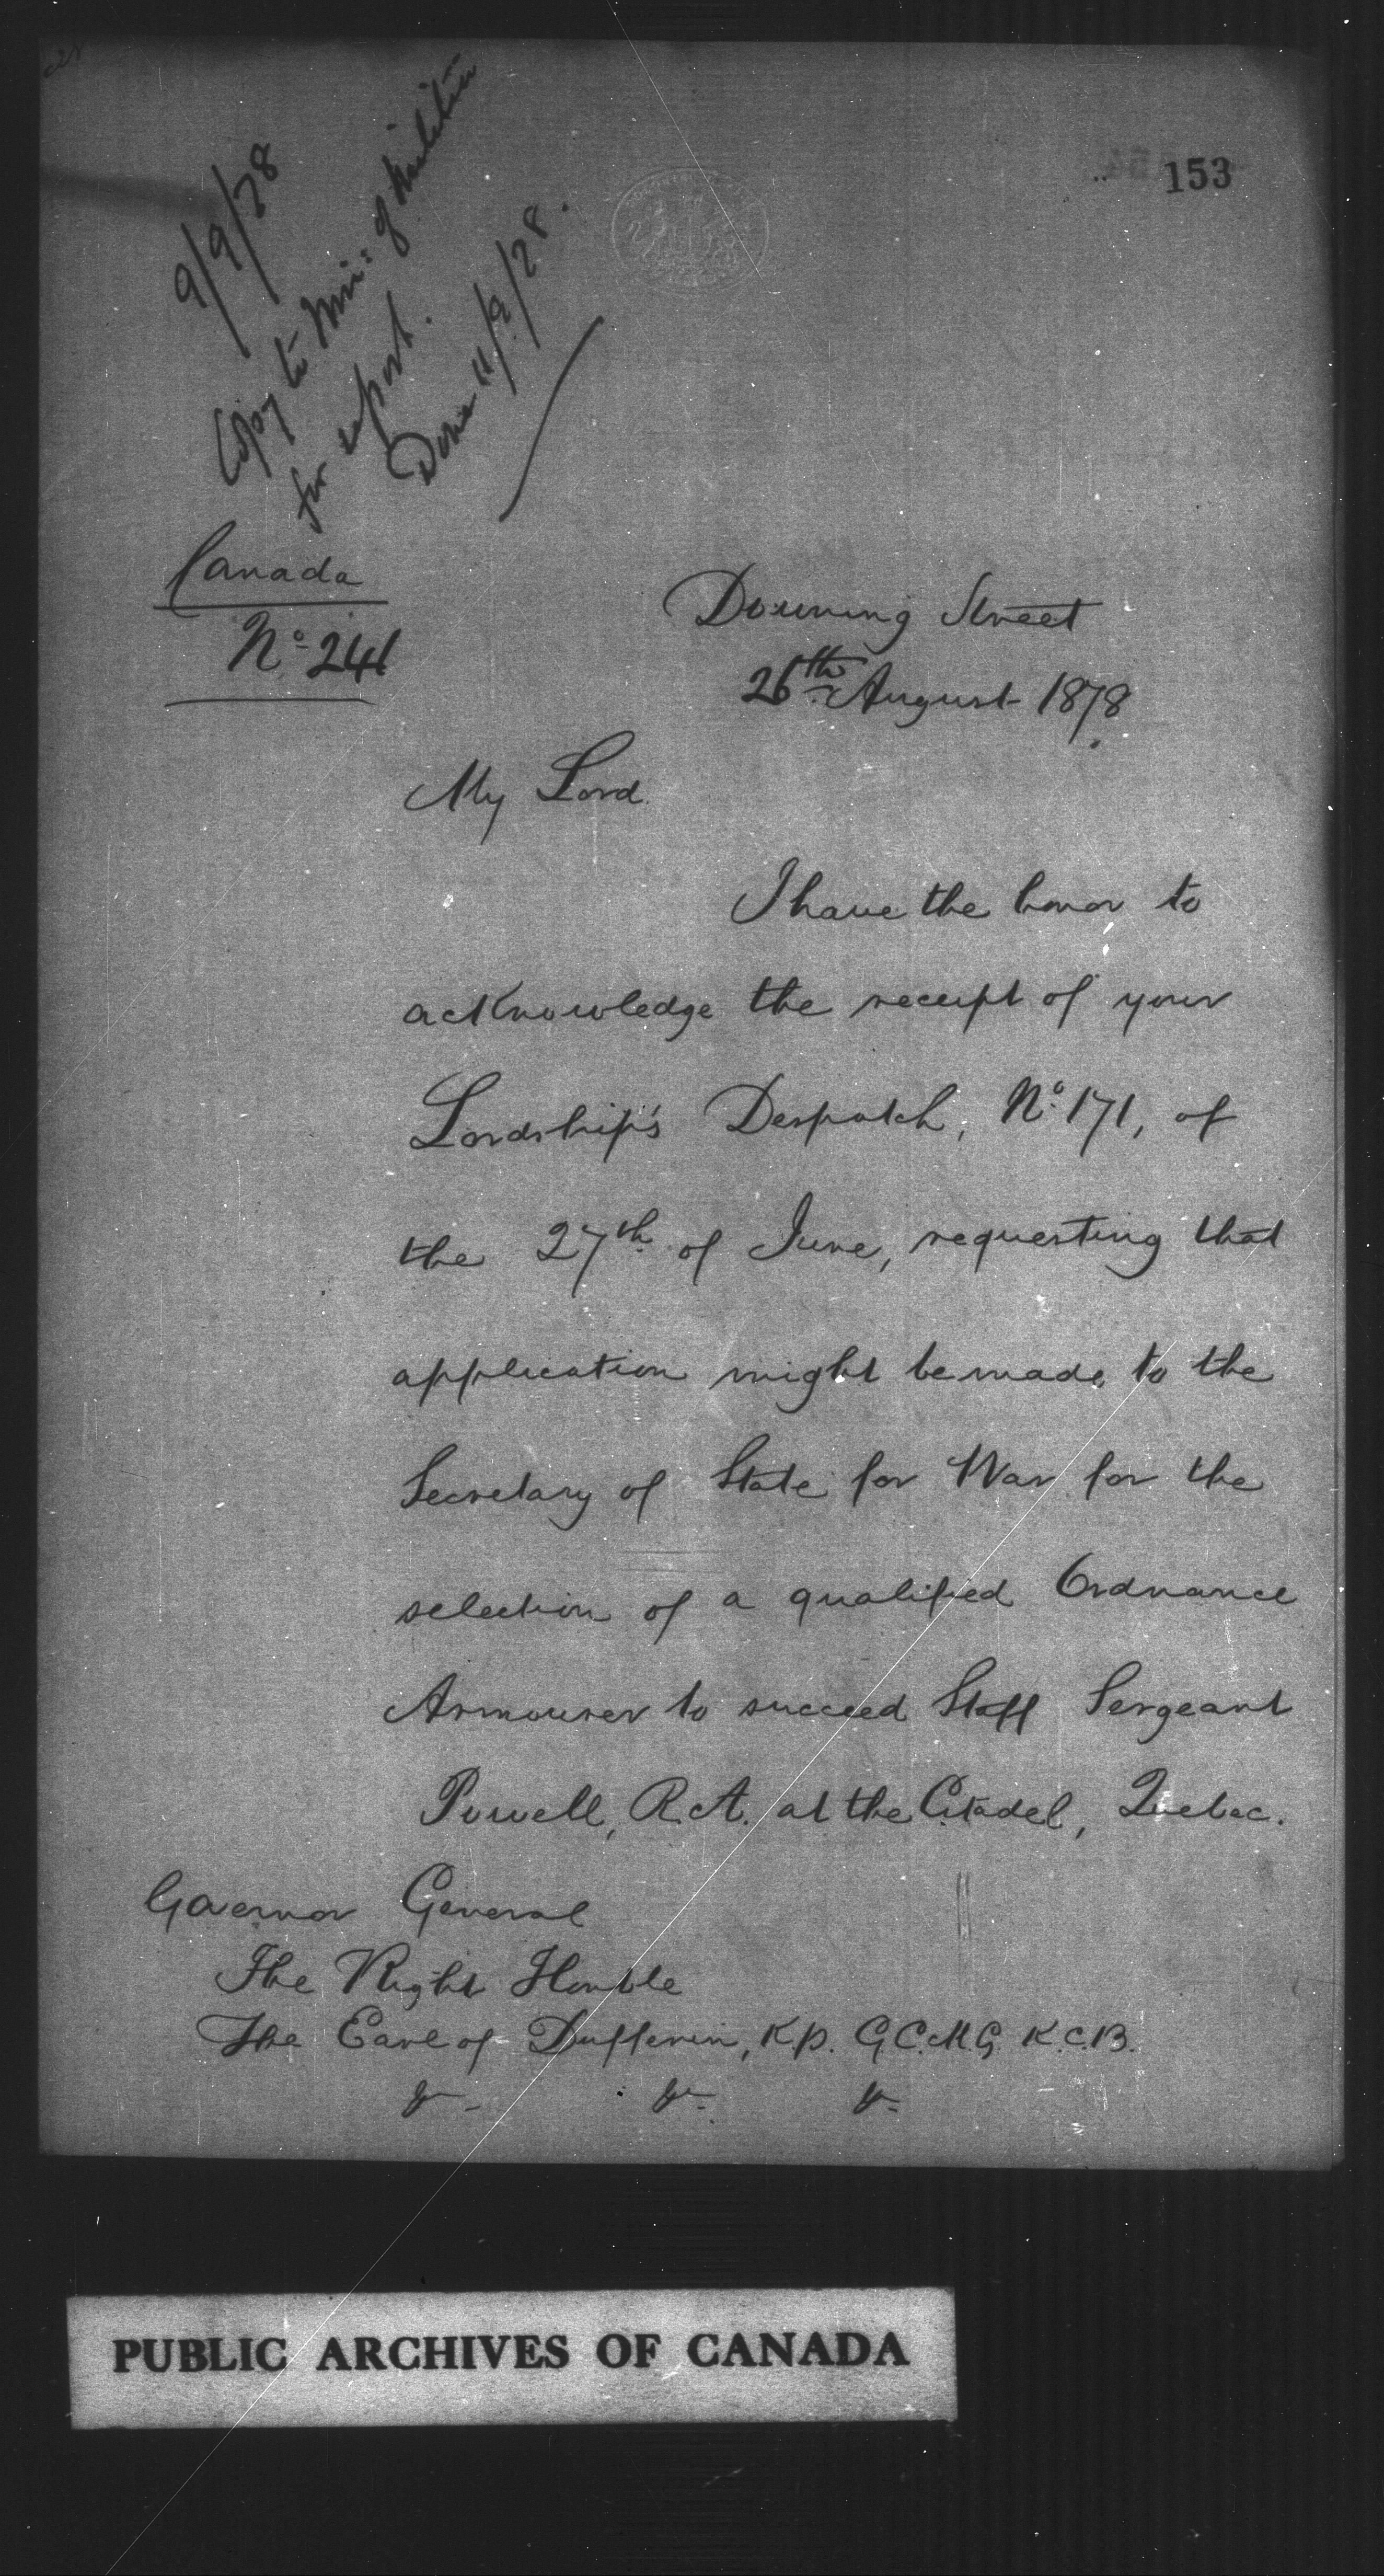 153
9/9/78
Copy to Min: of Militia
for report.
Done 11/9/78.
Canada
No 241
Downing Street
26th August 1878
My Lord
I have the honor to
acknowledge the receipt of your
Lordship's Despatch, No 171, of
the 27th of June, requesting that
application might be made to the
Secretary of State for War for the
selection of a qualified Ordnance
Armourer to succeed Staff Sergeant
Powell, R.A. at the Citadel, Quebec.
Governor General
The Right Honble
The Earl of Dufferin, K.P. G.C.M.G. K.C.B.
&c. &c. &c.
PUBLIC ARCHIVES OF CANADA